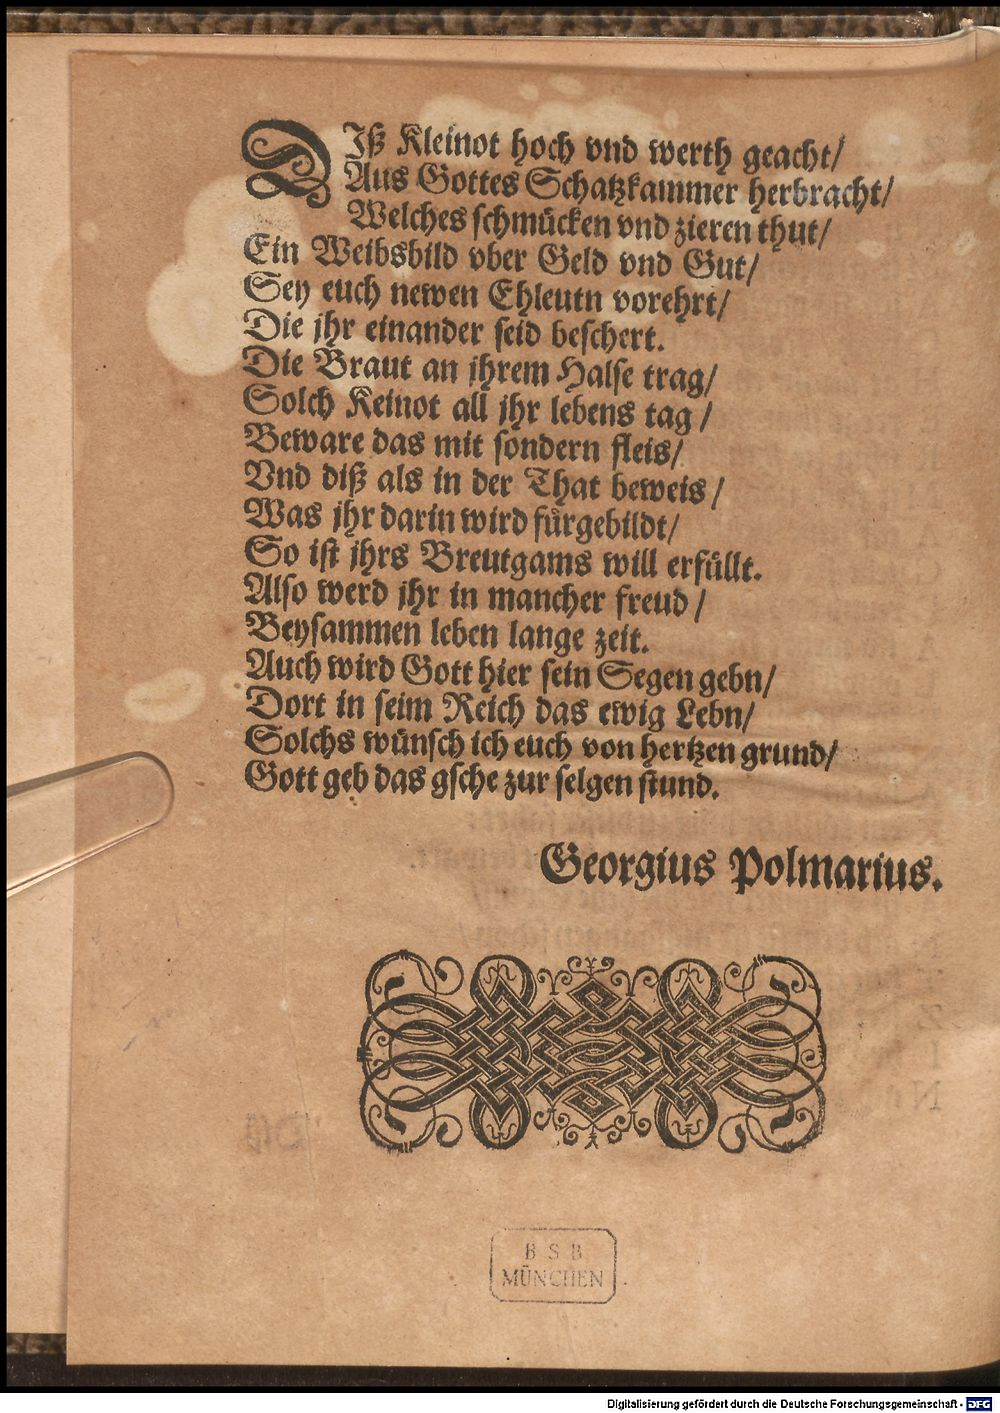 DIß Kleinot hoch vnd werth geacht/
Aus Gottes Schatzkammer herbracht/
Welches schmücken vnd zieren thut/
Ein Weibsbild vber Geld vnd Gut/
Sey euch newen Ehleutn vorehrt/
Die jhr einander seid beschert.
Die Braut an jhrem Halse trag/
Solch Keinot all jhr lebens tag/
Beware das mit sondern fleis/
Vnd diß als in der That beweis/
Was jhr darin wird fürgebildt/
So ist jhrs Breutgams will erfüllt.
Also werd jhr in mancher freud/
Beysammen leben lange zeit.
Auch wird Gott hier sein Segen gebn/
Dort in seim Reich das ewig Lebn/
Solchs wünsch ich euch von hertzen grund/
Gott geb das gsche zur selgen stund.
Georgius Polmarius.
B S B
MÜNCHEN
Digitalisierung gefördert durch die Deutsche Forschungsgemeinschaft - DFG